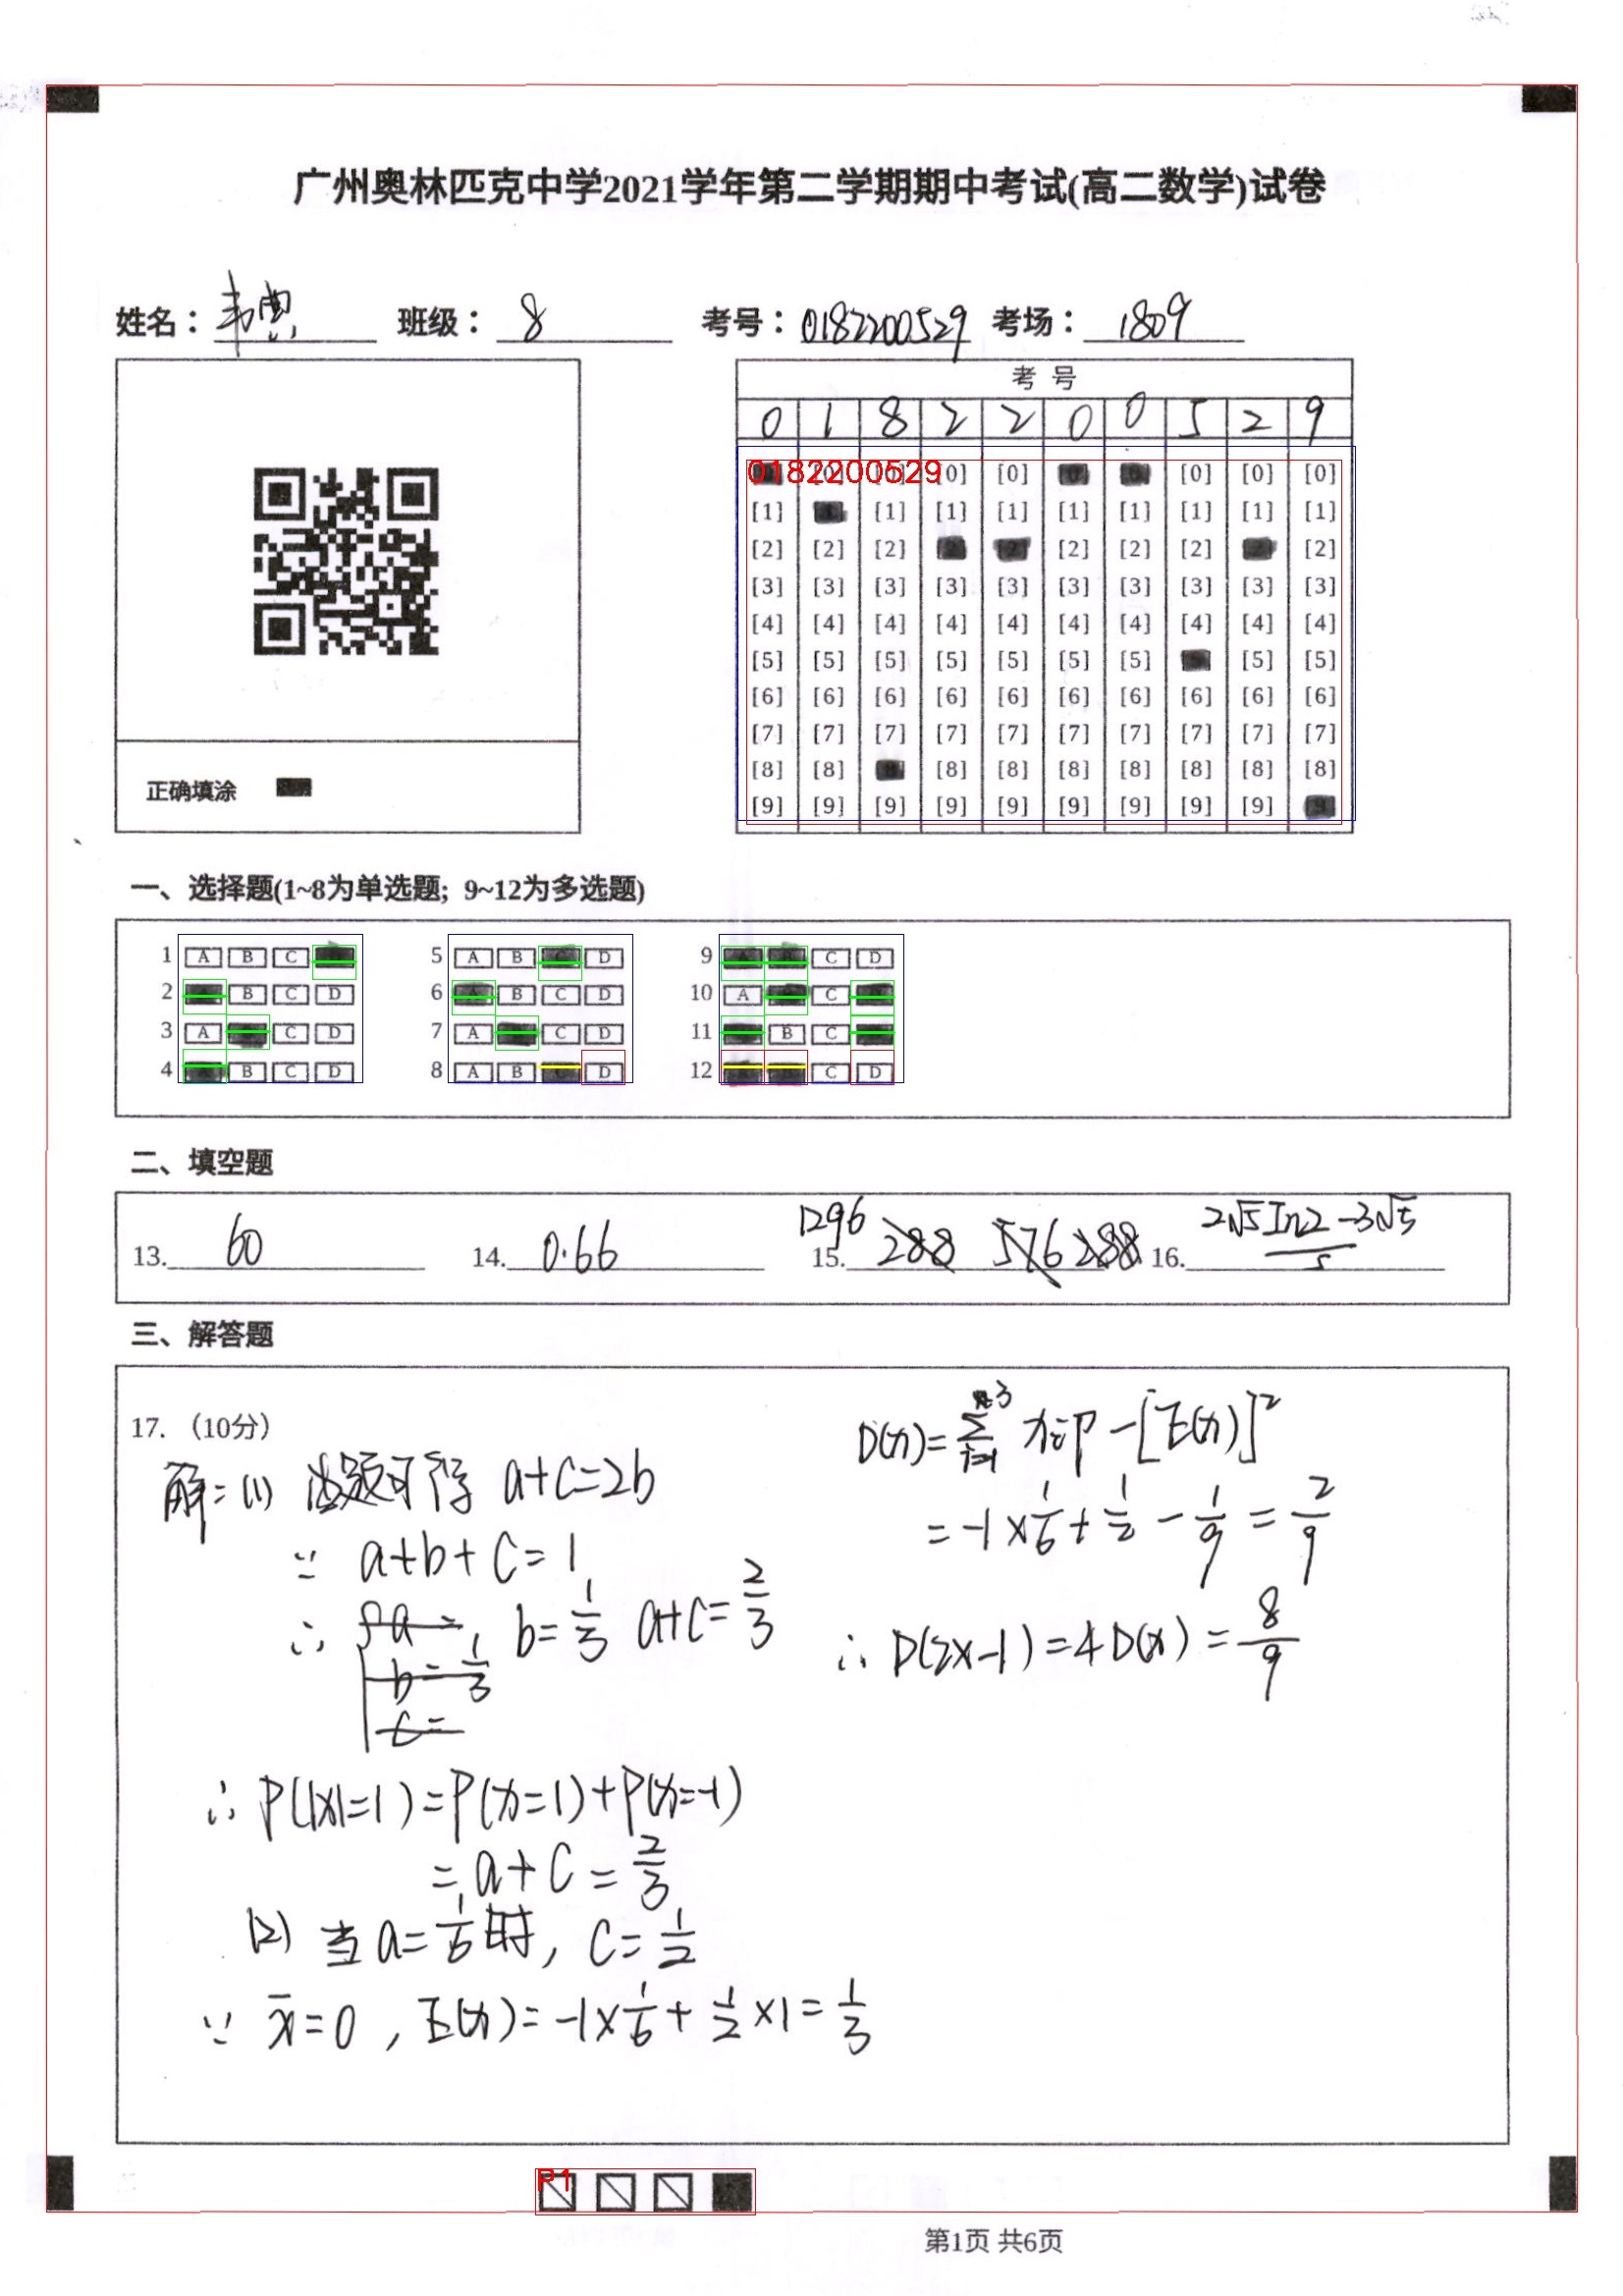 广州奥林匹克中学2021学年第二学期期中考试(高二数学)试卷
姓名： 韦典 班级： 8 考号： 0182200529 考场： 1809
考 号
0 1 8 2 2 0 0 5 2 9
0182200529
[0] [0] [0] [0] [0] [0]
[1] [1] [1] [1] [1] [1] [1] [1] [1]
[2] [2] [2] [2] [2] [2] [2]
[3] [3] [3] [3] [3] [3] [3] [3] [3] [3]
[4] [4] [4] [4] [4] [4] [4] [4] [4] [4]
[5] [5] [5] [5] [5] [5] [5] [5] [5]
[6] [6] [6] [6] [6] [6] [6] [6] [6] [6]
[7] [7] [7] [7] [7] [7] [7] [7] [7] [7]
[8] [8] [8] [8] [8] [8] [8] [8] [8]
[9] [9] [9] [9] [9] [9] [9] [9] [9]
正确填涂
一、选择题(1~8为单选题; 9~12为多选题)
1 A B C 5 A B C D 9 A B C D
2 B C D 6 A B C D 10 A C
3 A C D 7 A C D 11 B C
4 B C D 8 A B D 12 A B C D
二、填空题
13. 60 14. 0.66 15. 1296 288 576 288 16. 2√5 In2 -3√5 / 5
三、解答题
17.（10分）
解：(1) 由题可得 a+c=2b
∵ a+b+c=1
∴ a= b=1/3 c= b=1/3 a+c=2/3
∴ P(|x|=1)=P(x=1)+P(x=-1)
=a+c=2/3
(2) 当a=1/6时, c=1/2
∵ x̄=0 , E(x)=-1×1/6+1/2×1=1/3
=-1×1/6+1/2-1/9=2/9
∴ D(2x-1)=4D(x)=8/9
P1
第1页 共6页